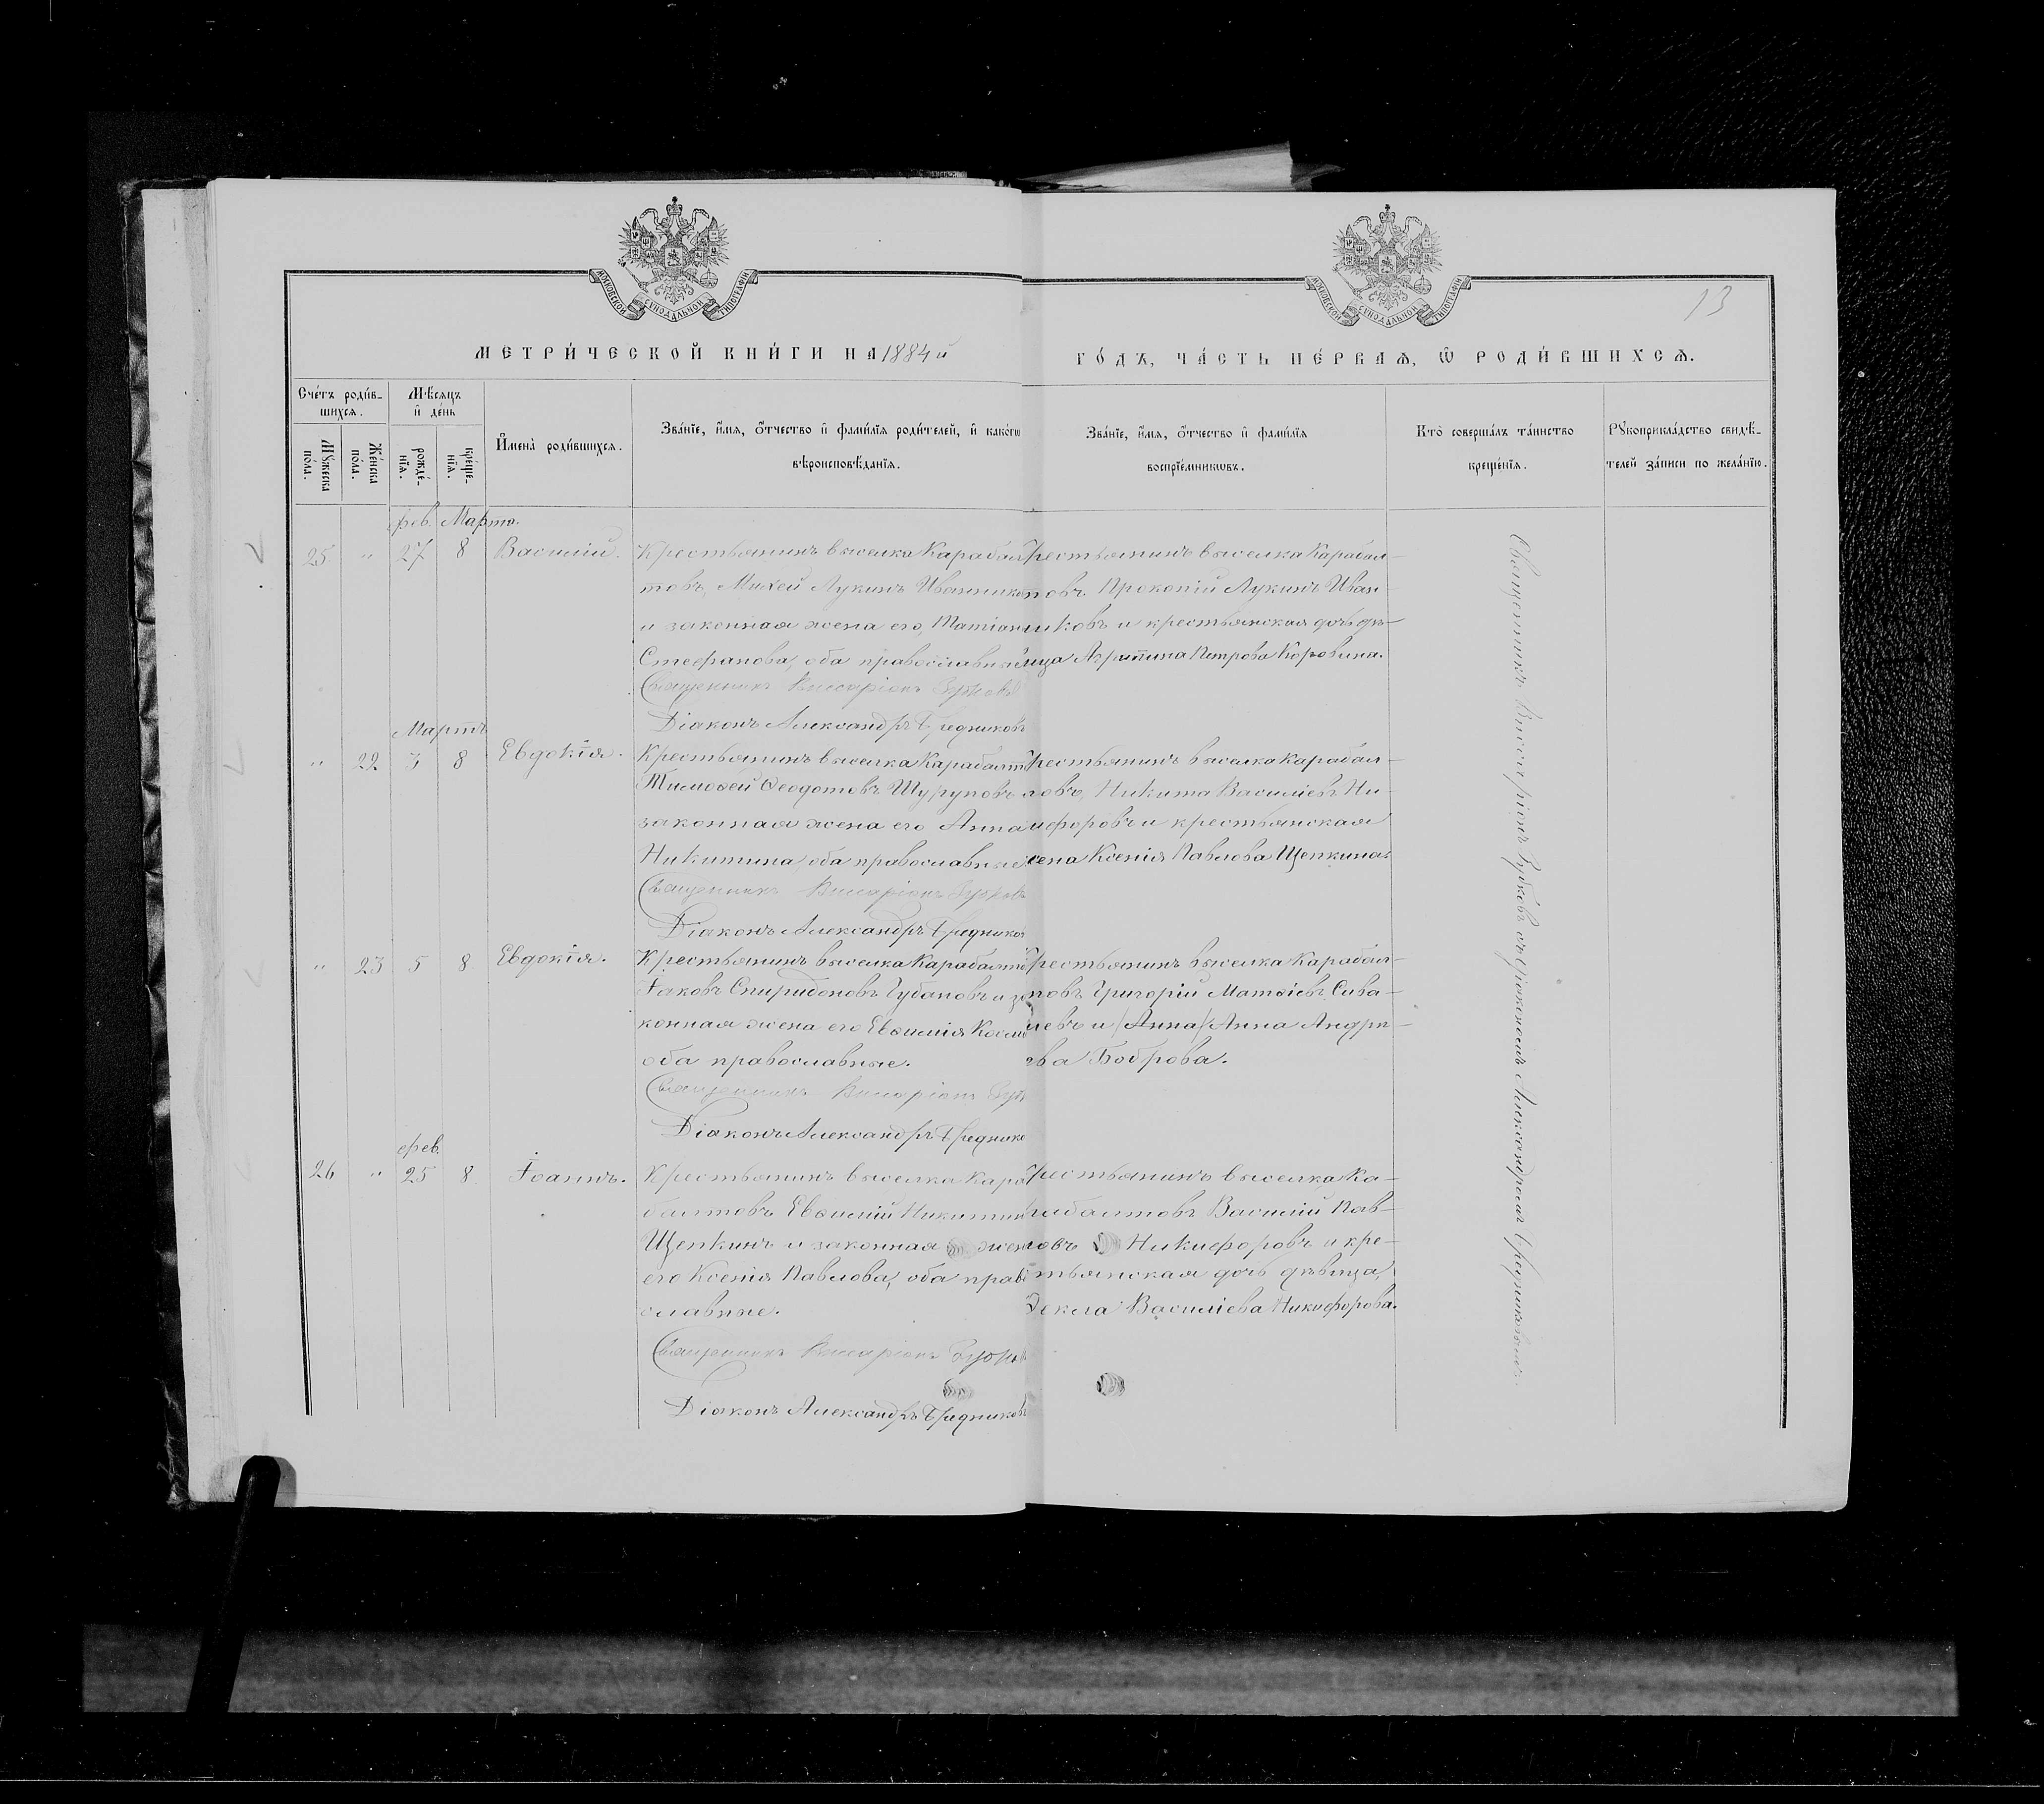 МОСКОВСКОЙ СѴНОДАЛЬНОЙ ТИПОГРАФІИ
МОСКОВСКОЙ СѴНОДАЛЬНОЙ ТИПОГРАФІИ
13
МЕТРИ́ЧЕСКОЙ КНИ́ГИ НА 1884й
ГО́ДЪ, ЧА́СТЬ ПЕ́РВАѦ, Ѡ РОДИ́ВШИХСѦ.
Сче́тъ роди́в-
шихсѧ.
Мꙋжеска по́ла.
Же́нска по́ла.
Мѣ́сѧцъ
и де́нь
рожде́-
нїѧ.
креще́-
нїѧ.
И҆мена̀ роди́вшихсѧ.
Зва́нїе, и҆́мѧ, ѻ҆́тчество и҆ фами́лїѧ роди́телей, и҆ како́гѡ
вѣроисповѣ́данїѧ.
Зва́нїе, и҆́мѧ, ѻ҆́тчество и҆ фами́лїѧ
воспрїе́мникѡвъ.
Кто̀ соверша́лъ та́инство
креще́нїѧ.
Рꙋкоприкла́дство свидѣ́-
телей за́писи по жела́нїю.
фев. Марта.
25 " 27 8 Василій.
Крестьянинъ выселка Карабал
товъ, Михей Лукинъ Иванников
и законная жена его, Татіан
Стефанова, оба православные
Священникъ Виссаріонъ Зубковъ
Діаконъ Александръ Бредниковъ
рестьянинъ выселка Карабал-
товъ Прокопій Лукинъ Иван-
никовъ и крестьянская дочь дѣ-
вица Агрипина Петрова Коровина.
Мартъ
" 22 3 8 Евдокія.
Крестьянинъ выселка Карабалт
Тимоѳей Ѳеодотовъ Шуруповъ
законная жена его Анна
Никитина, оба православные
Священникъ Виссаріонъ Зубковъ
Діаконъ Александръ Бредников
рестьянинъ выселка Карабал-
товъ, Никита Василіевъ Ни-
кифоровъ и крестьянская
жена Ксенія Павлова Щепкина.
" 23 5 8 Евдокія.
Крестьянинъ выселка Карабалто
Іаковъ Спиридоновъ Губановъ и за
конная жена его Евѳимія Косм
оба православные.
Священникъ Виссаріонъ Зуб
Діаконъ Александръ Бреднико
рестьянинъ выселка Карабал-
товъ Григорій Матѳіевъ Сива-
левъ и /Анна/ Анна Андре-
ева Боброва.
фев.
26 " 25 8 Іоаннъ.
Крестьянинъ выселка Кара
балтовъ Евѳимій Никитин
Щепкинъ и законная жен
его Ксенія Павлова, оба право
славные.
Священникъ Виссаріонъ Зубков
Діаконъ Александръ Бредниковъ
рестьянинъ выселка Ка-
рабалтовъ Василій Пав-
ловъ Никифоровъ и кре-
стьянская дочь дѣвица,
Ѳекла Василіева Никифорова.
Священникъ Виссаріонъ Зубковъ съ діакономъ Александромъ Бредниковымъ.